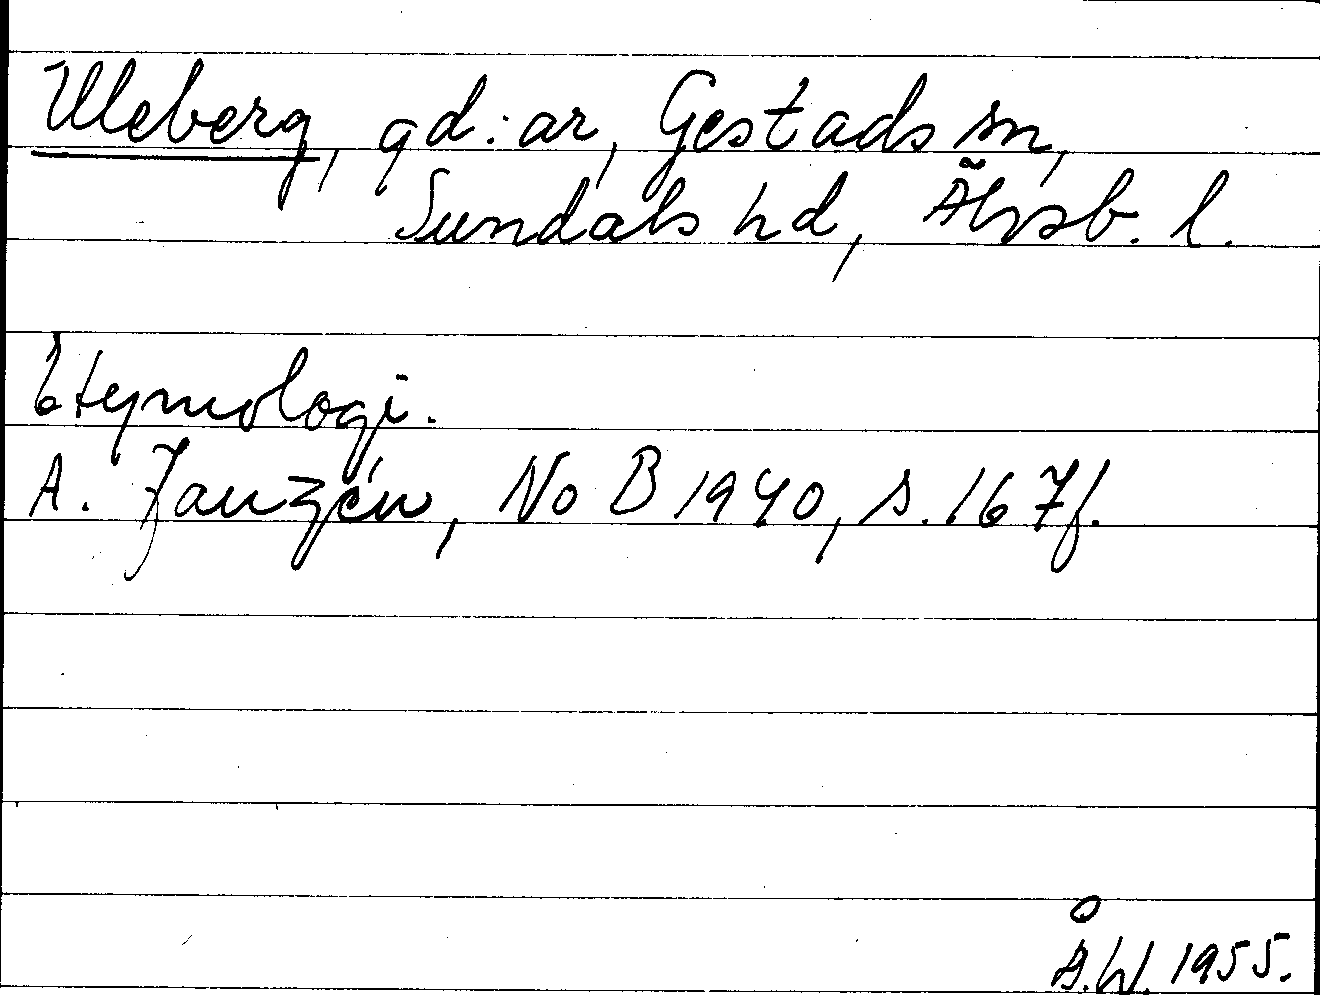 Uleberg, gd:ar, Gestads sn,
Sundals hd, Älvsb. l.
Etymologi.
A. Janzén, NoB 1940, s. 167f.
Å.W. 1955.